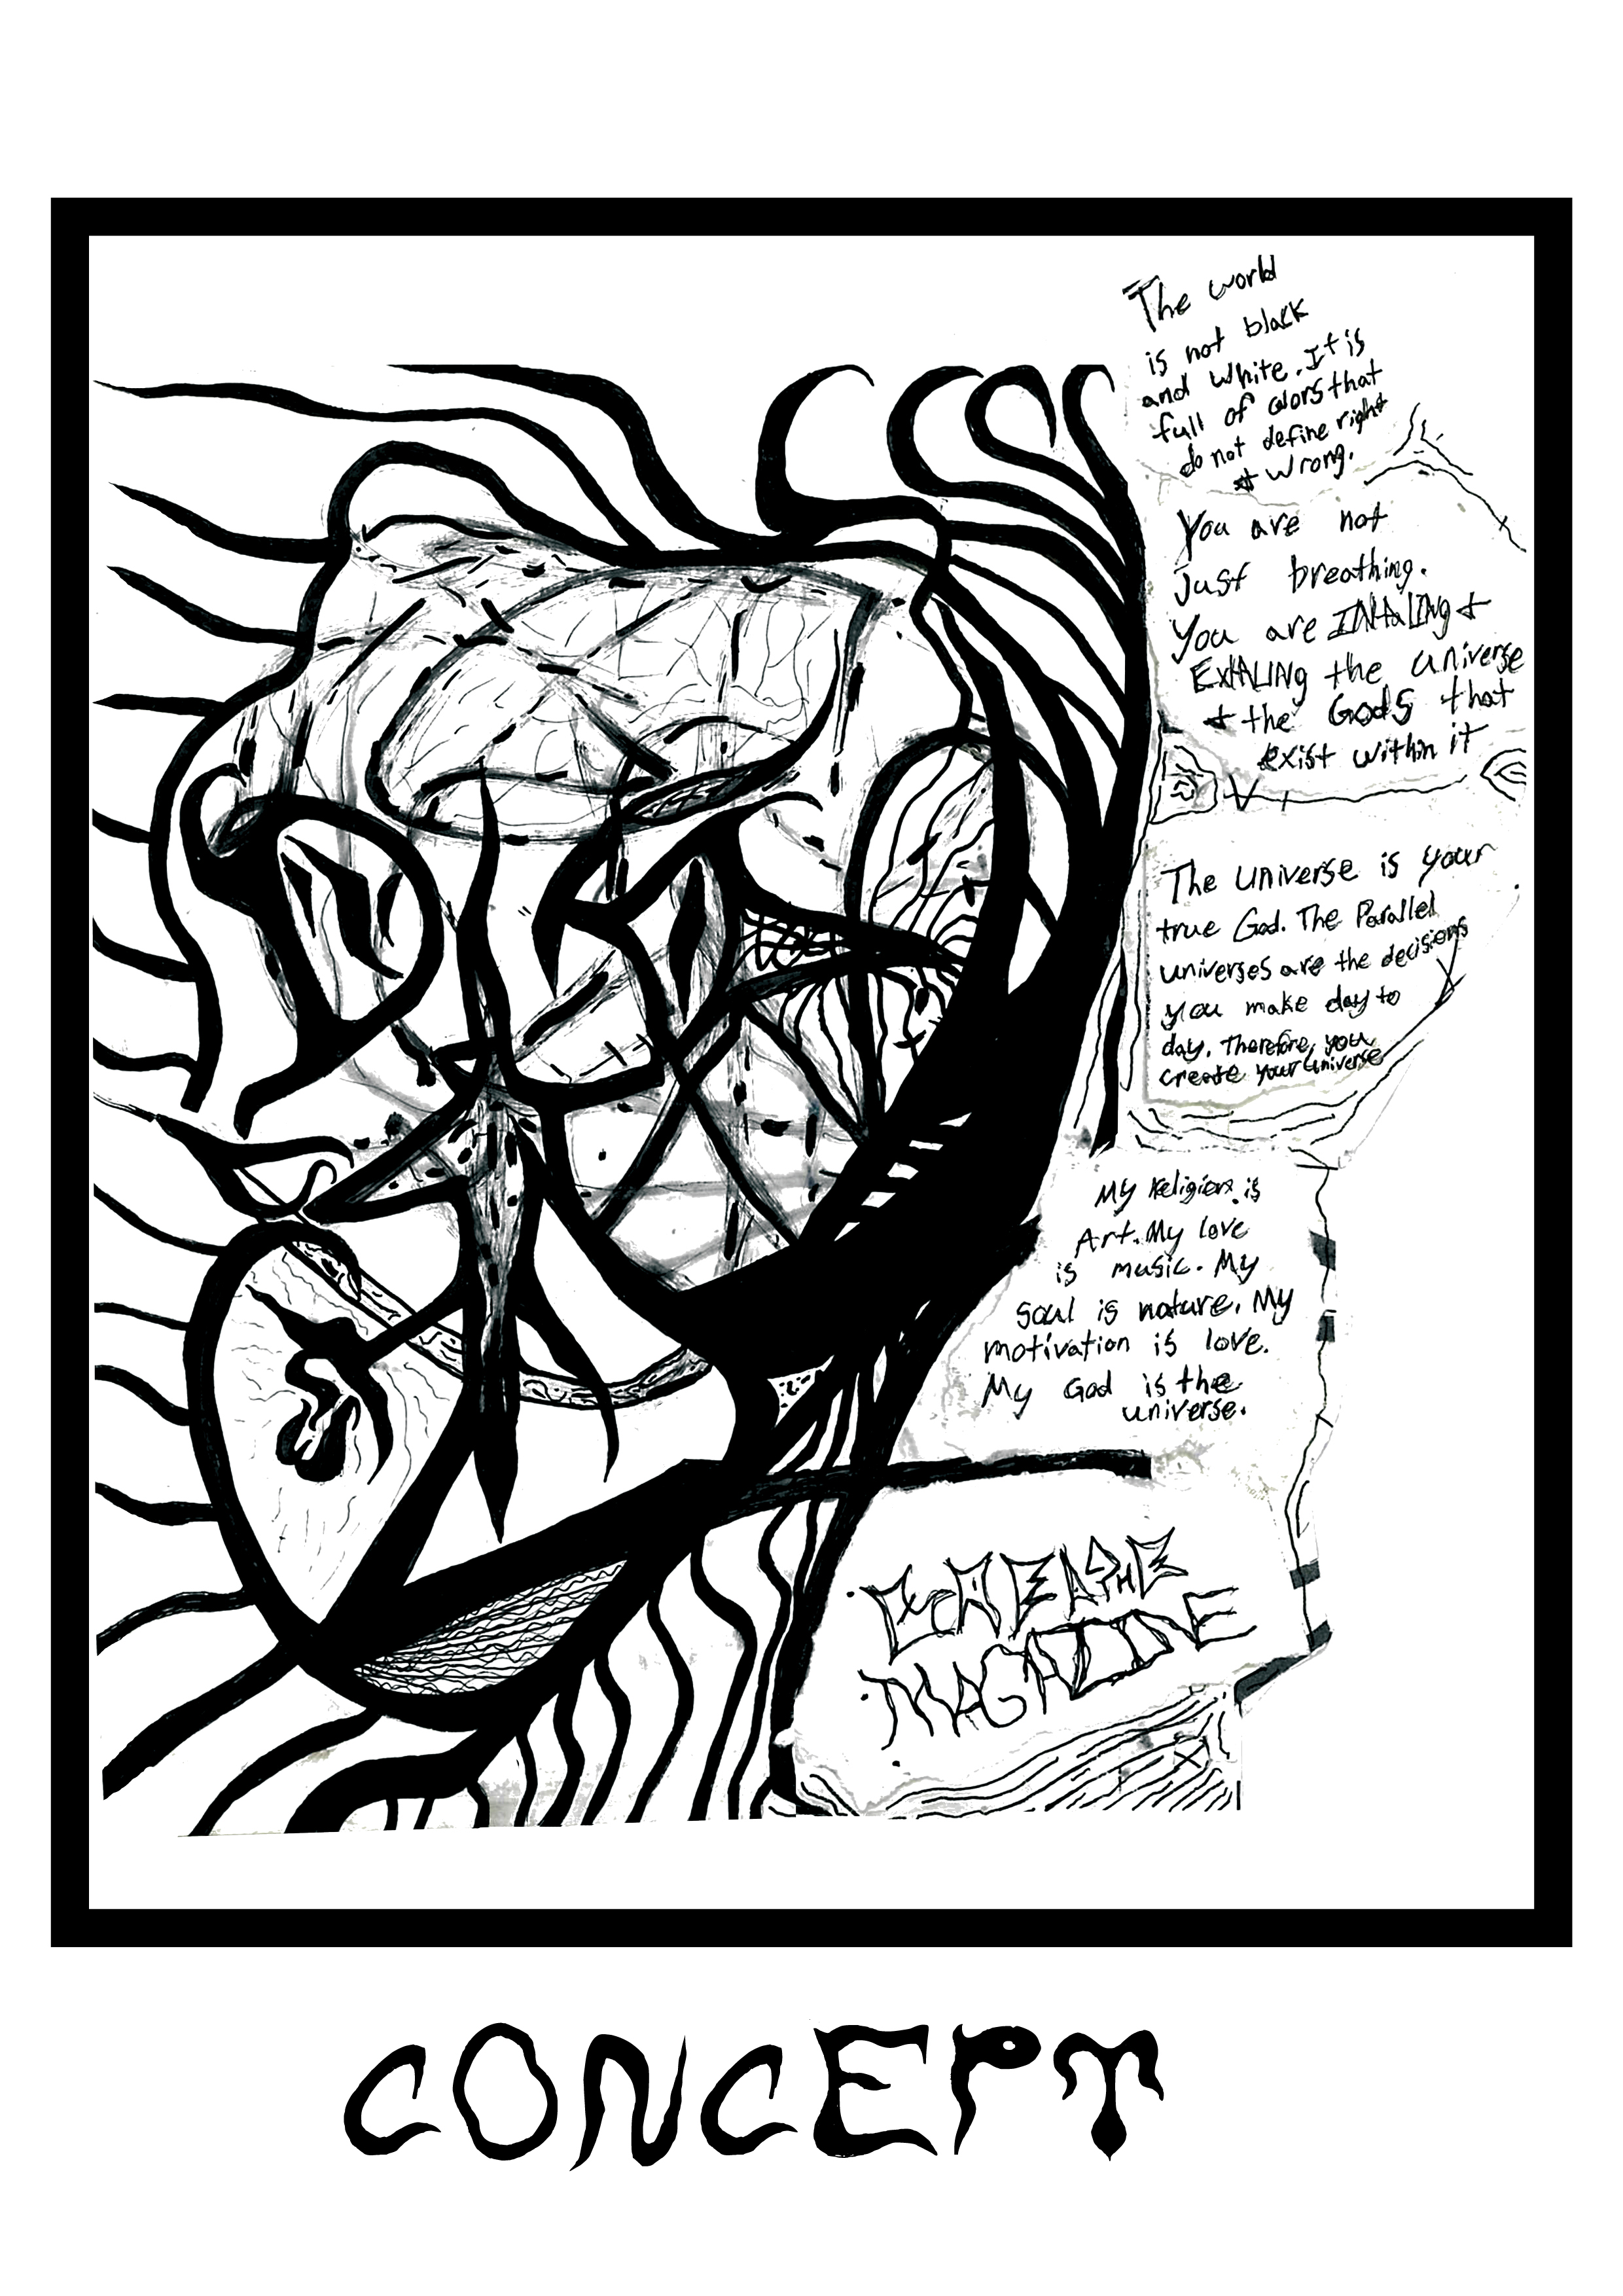 The world
is not black
and white. It is
full of colors that
do not define right
& wrong.
You are not
just breathing.
You are INHALING &
EXHALING the universe
& the Gods that
exist within it
The Universe is your
true God. The Parallel
universes are the decisions
you make day to
day. Therefore, you
create your universe
My Religion is
Art. My love
is music. My
Soul is nature. My
motivation is love.
My God is the
universe.
MAGAZINE
CONCEPT